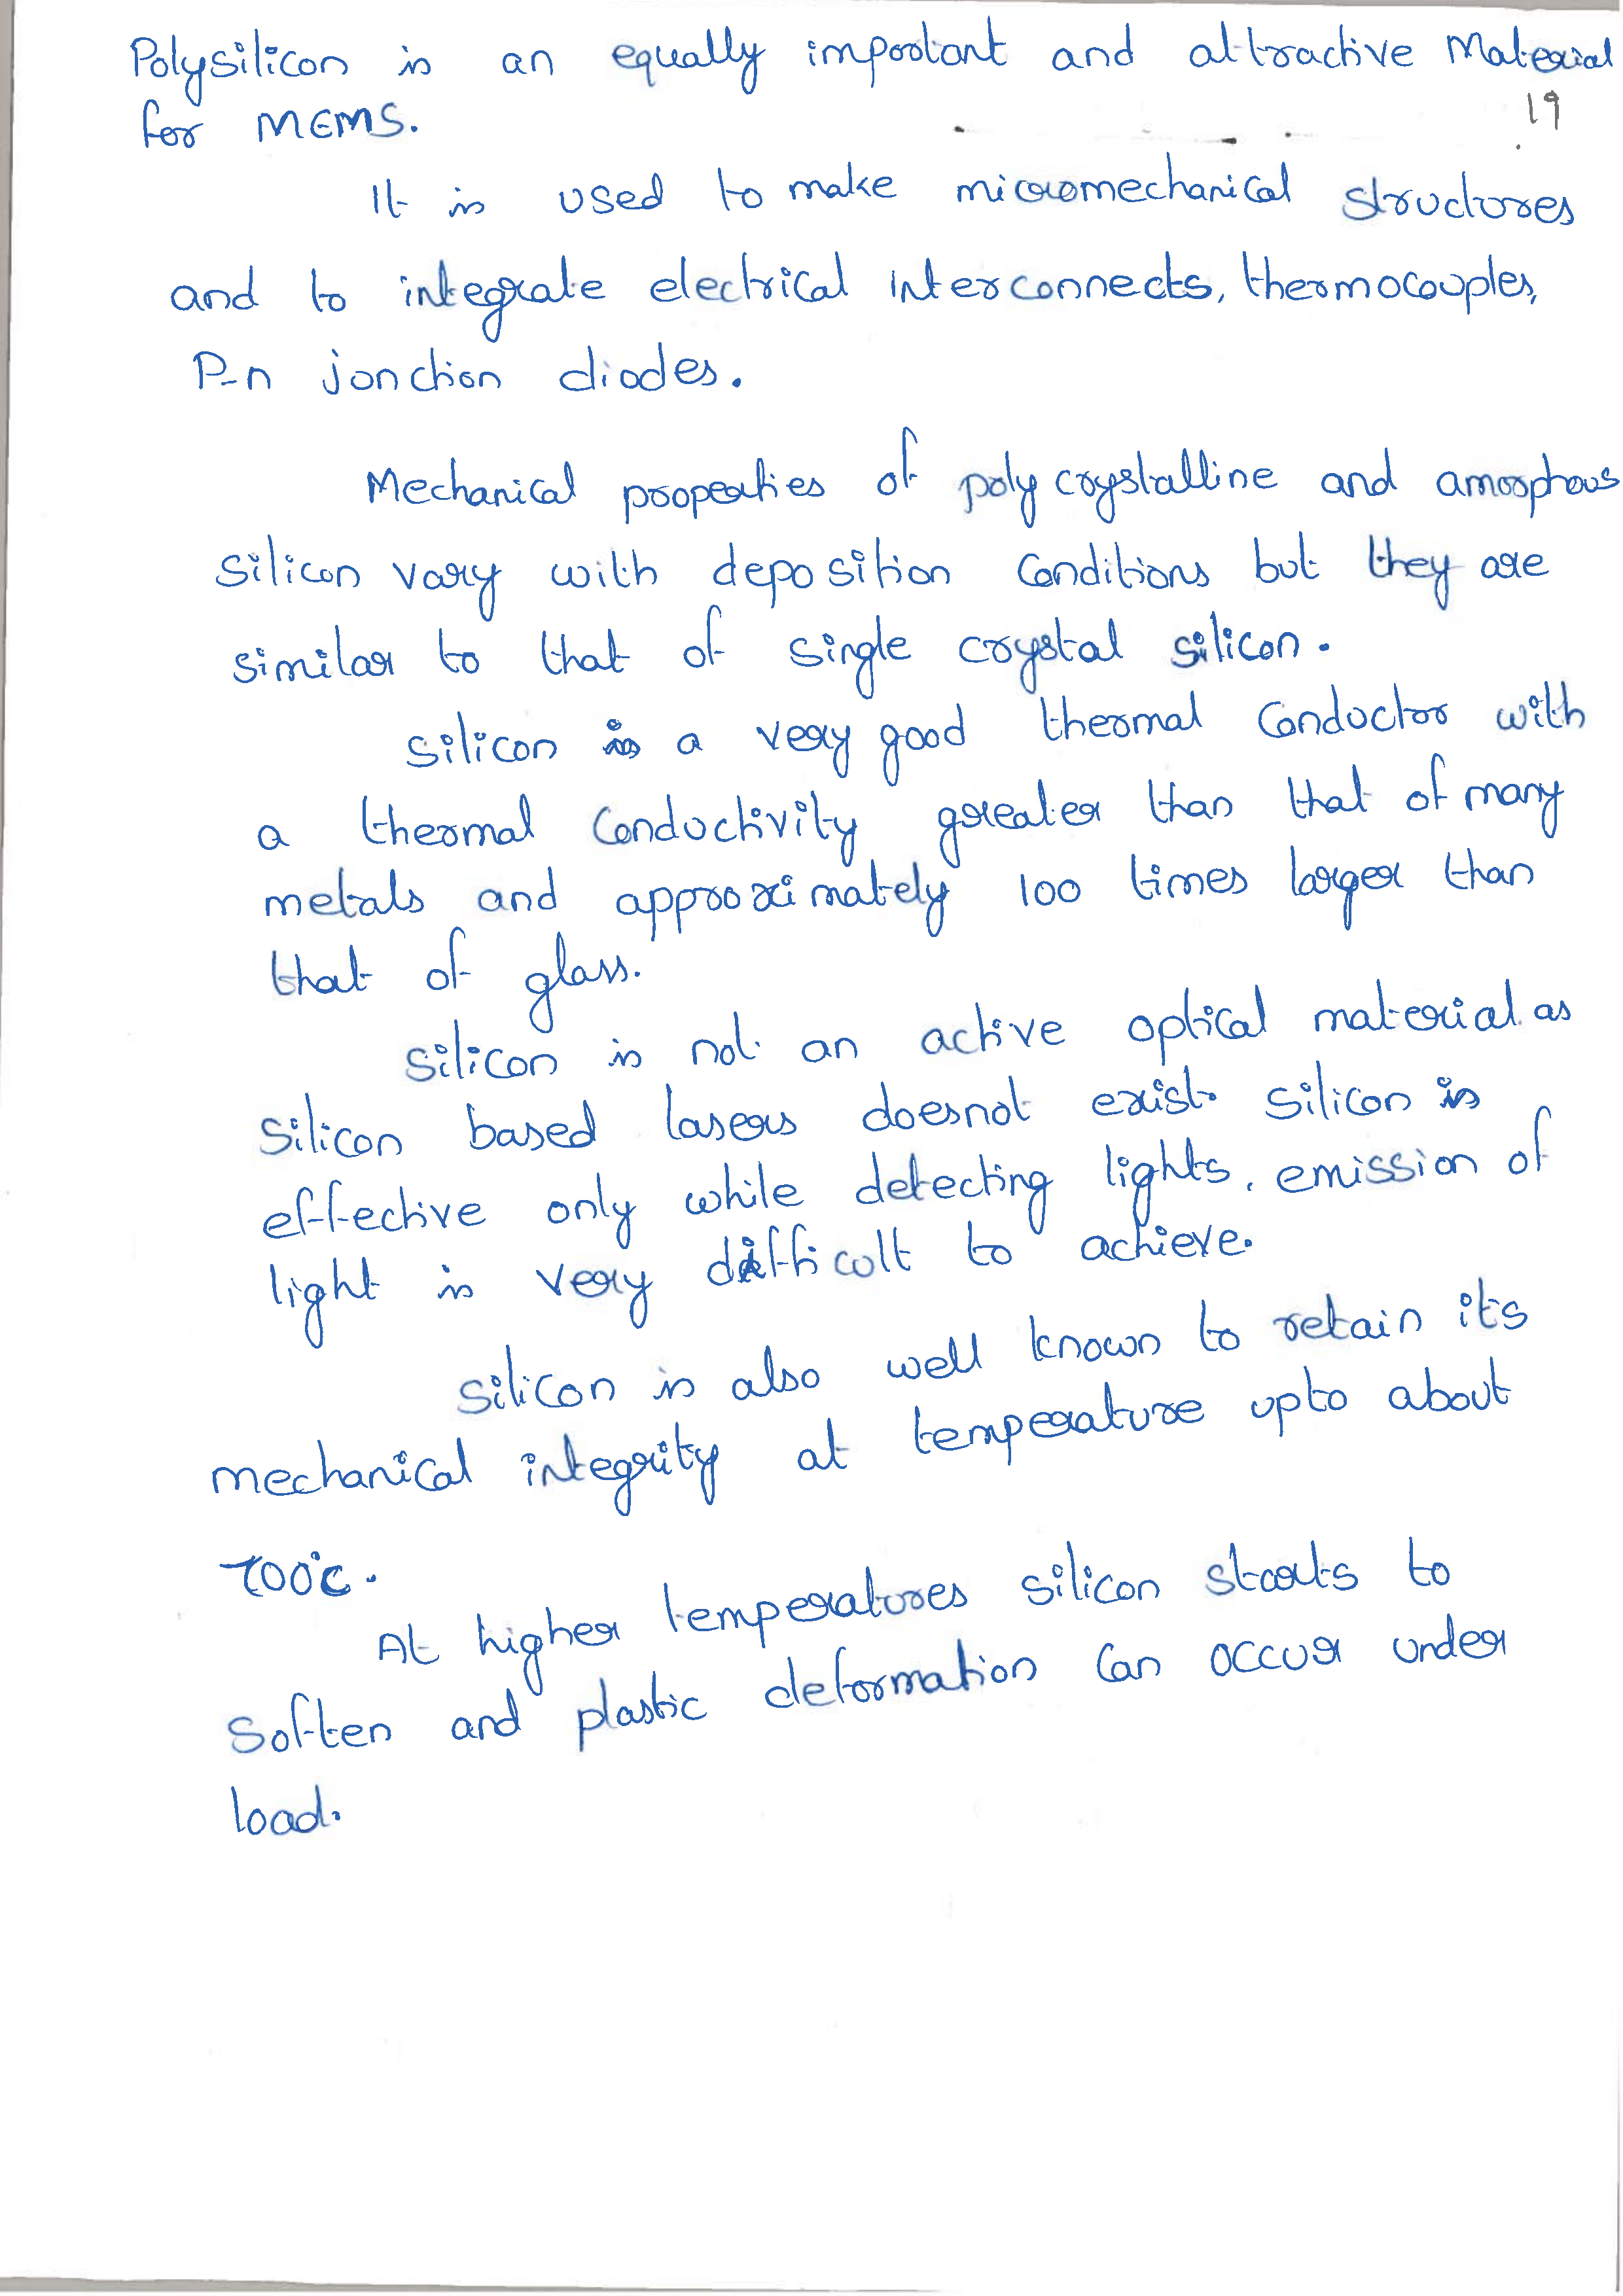 Polysilicon is an equally important and attractive Material
19
for MEMS.
It is used to make micromechanical structures
and to integrate electrical interconnects, thermocouples,
P-n junction diodes.
Mechanical properties of poly crystalline and amorphous
silicon vary with deposition conditions but they are
similar to that of single crystal silicon.
silicon is a very good thermal conductor with
a thermal conductivity greater than that of many
metals and approximately 100 times larger than
that of glass.
silicon is not an active optical material as
silicon based lasers doesnot exist. silicon is
effective only while detecting lights, emission of
light is very difficult to achieve.
silicon is also well known to retain its
mechanical integrity at temperature upto about
700°C.
At higher temperatures silicon starts to
soften and plastic deformation can occur under
load.